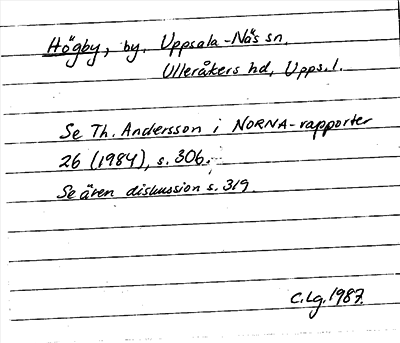 Högby, by. Uppsala-Näs sn.
Ulleråkers hd, Upps.l.
Se Th. Andersson i NORNA-rapporter
26 (1984), s. 306.
Se även diskussion s. 319.
C.Lg. 1987.